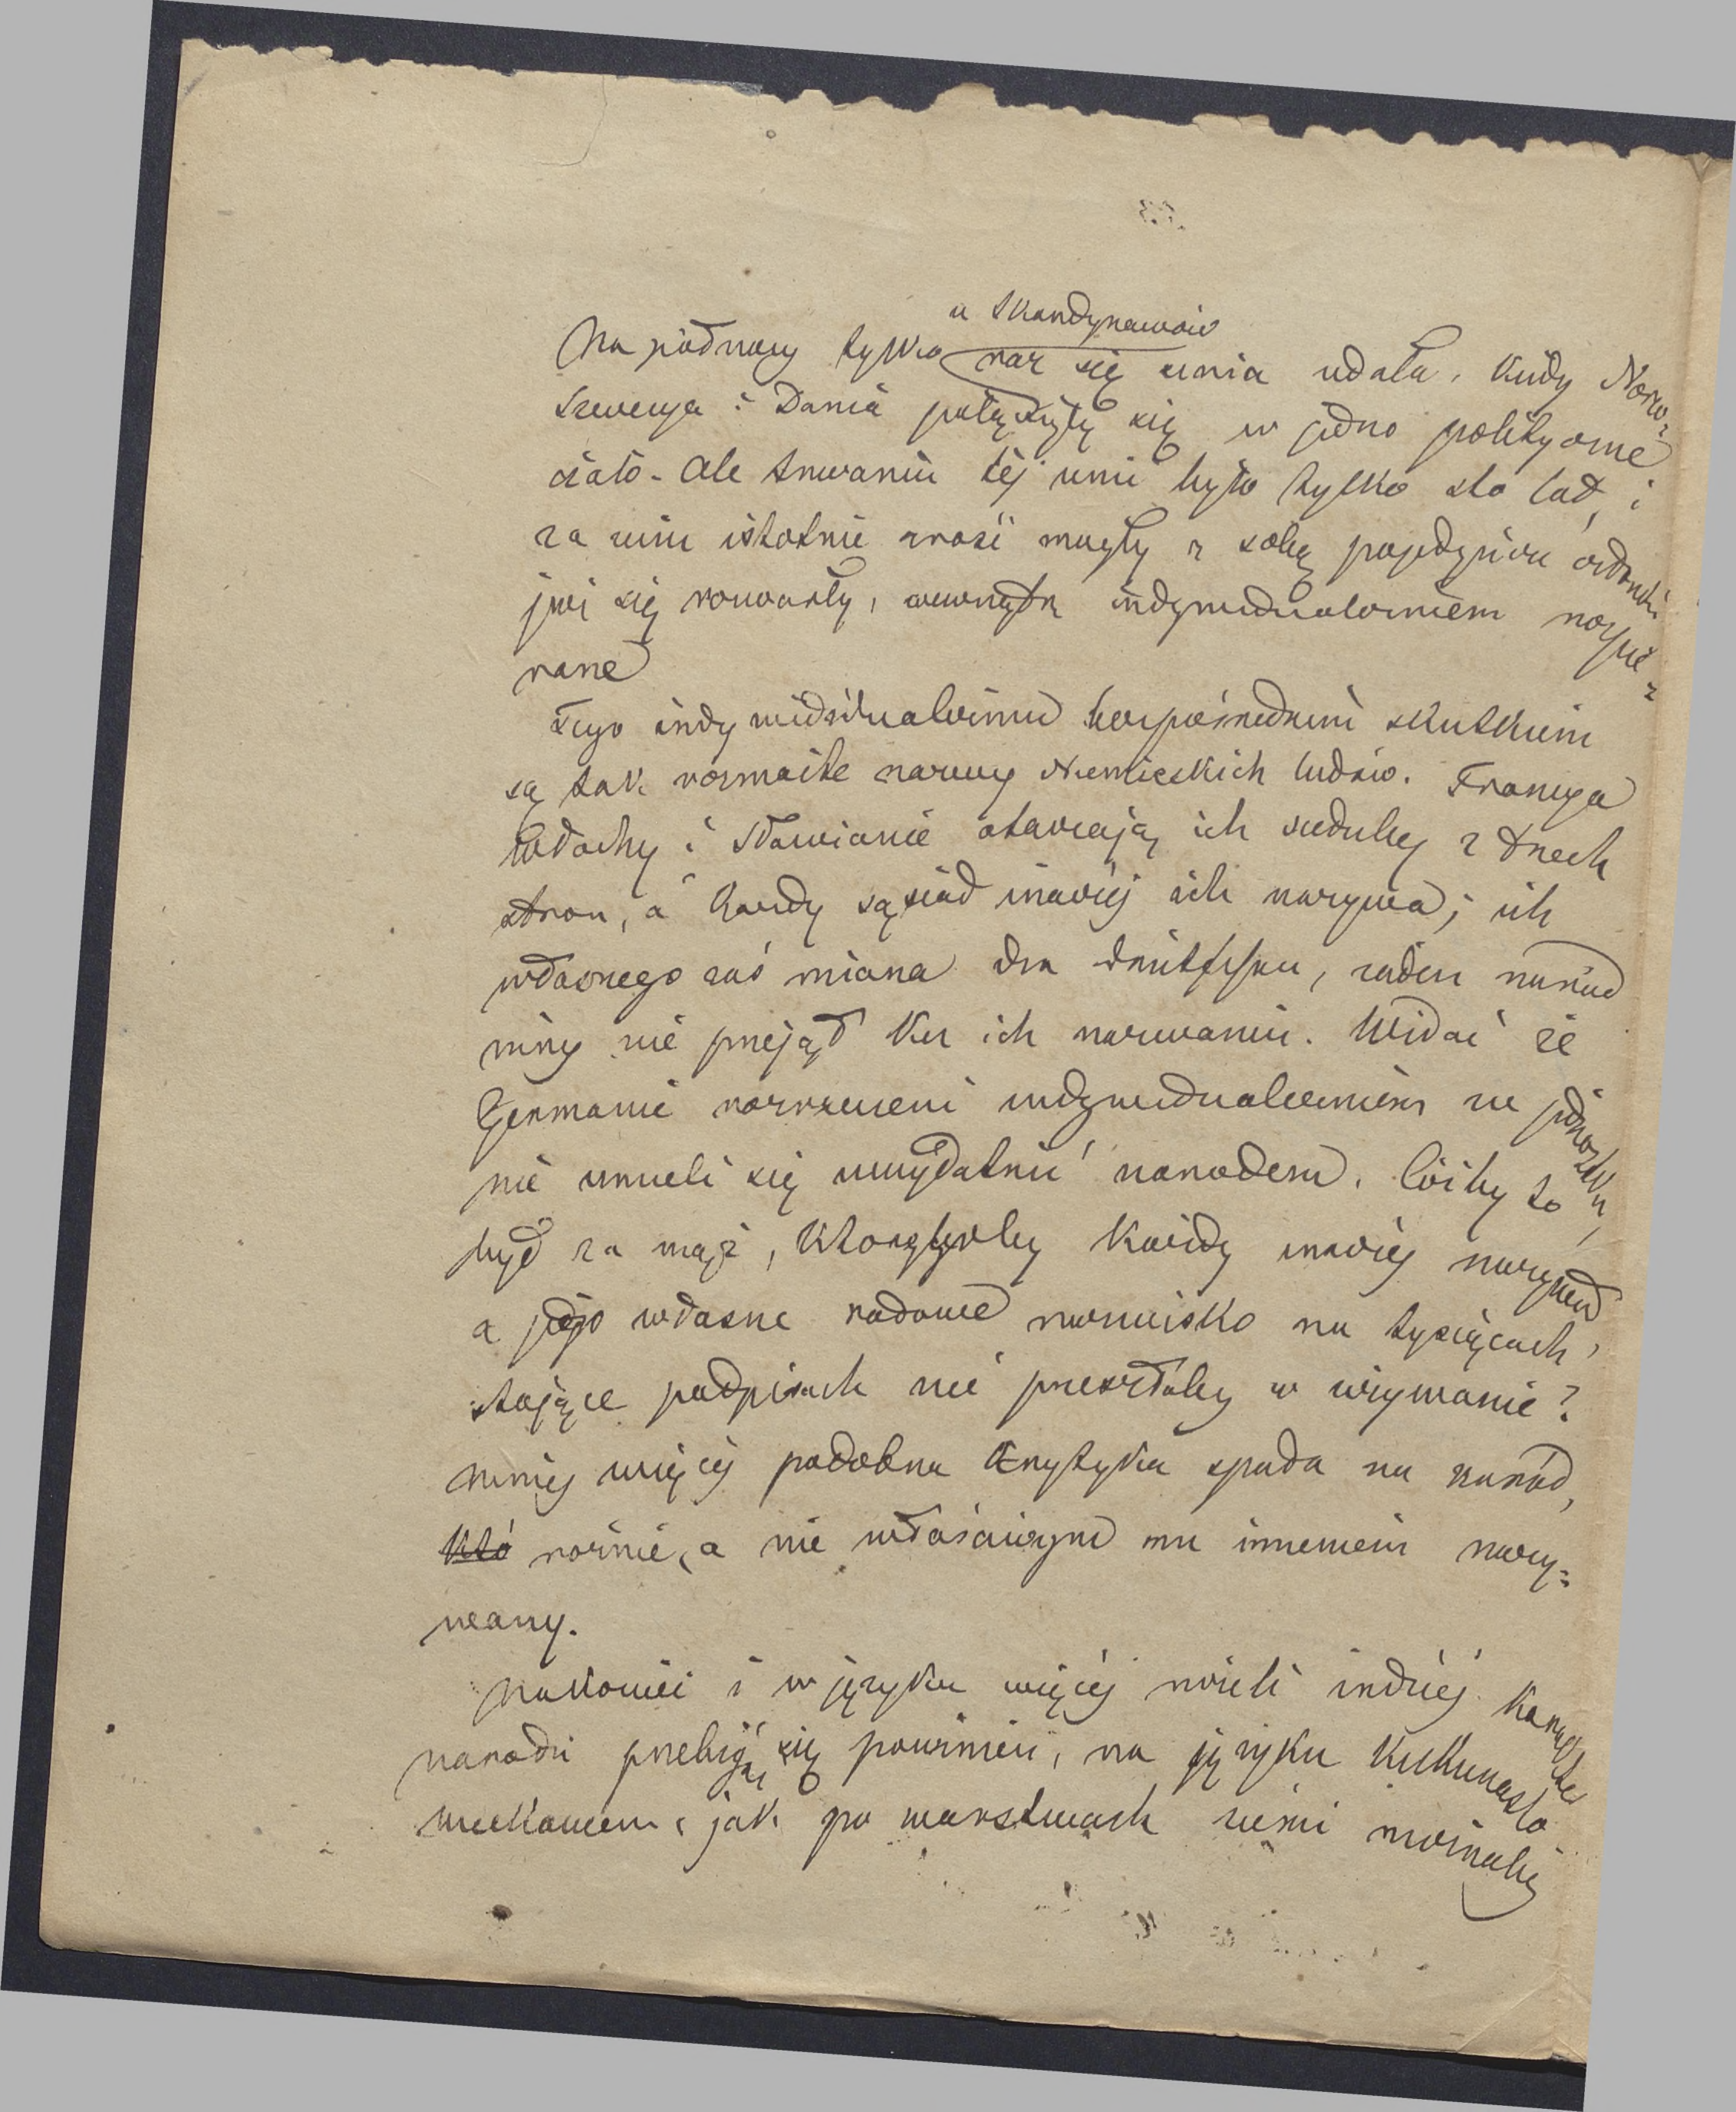 u Skandynawów
Na północy tylko raz się unia udała, kiedy Norw:
Szwecya i Dania połączyły się w jedno polityczne
ciało. Ale trwaniu tej unii było tylko sto lat, i
za niem istotnie znosić mogły z sobą pojedyńcze członki
już się rozwarły, wewnątrz indywidualizmem
rane
Tego indywidualizmu bezpośrednim skutkiem
są tak rozmaite nazwy Niemieckich ludów. Francya
Włochy i Sławianie otaczają ich siedziby z trzech
stron, a każdy sąsiad inaczéj ich nazywa; ich
własnego zaś miana żaden naród
inny nie przejął ku ich nazwaniu. Widać że
Germanie rozrzuceni indywidualizmem w jednostki,
nie umieli się uwydatnić narodem. Cóż by to
był za mąż, któregoby każdy inaczéj nazywał
a jego własne rodowe nazwisko na tysiącach
stojące podpisach nie przeszłoby w używanie?
mniej więcéj podobna krytyka spada na naród,
któ różnie, a nie właściwym mu imieniem nazy=
wany.
Nakoniec i w języku więcéj niżeli indziéj
narodu przebijać się powinien, na języku kilkunasto
wiekowem, jak po warstwach ziemi możnaby